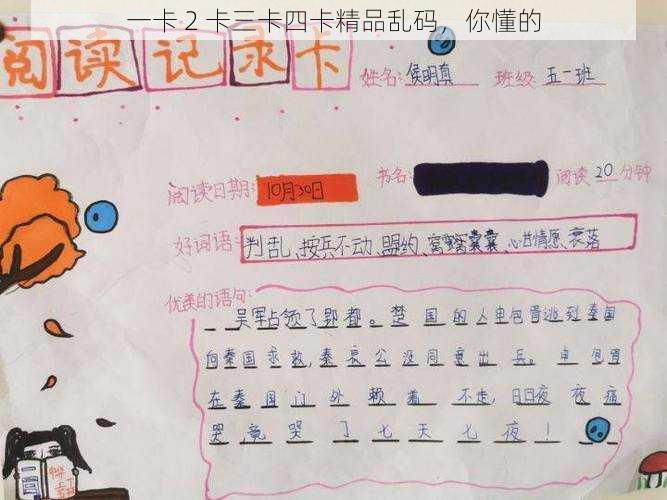 一卡 2 卡三卡四卡精品乱码，你懂的
阅读记录卡
姓名:侯明真 班级 五一班
阅读日期:10月30日 书名: 阅读 20 分钟
好词语:判乱、按兵不动、盟约、窝窝囊囊、心甘情愿、衰落
优美的语句:
吴军占领了郢都。楚国的人申包胥逃到秦国
向秦国求救,秦哀公没同意出兵。申包胥
在秦国门外赖着不走,日日夜夜痛
哭,竟哭了七天七夜!